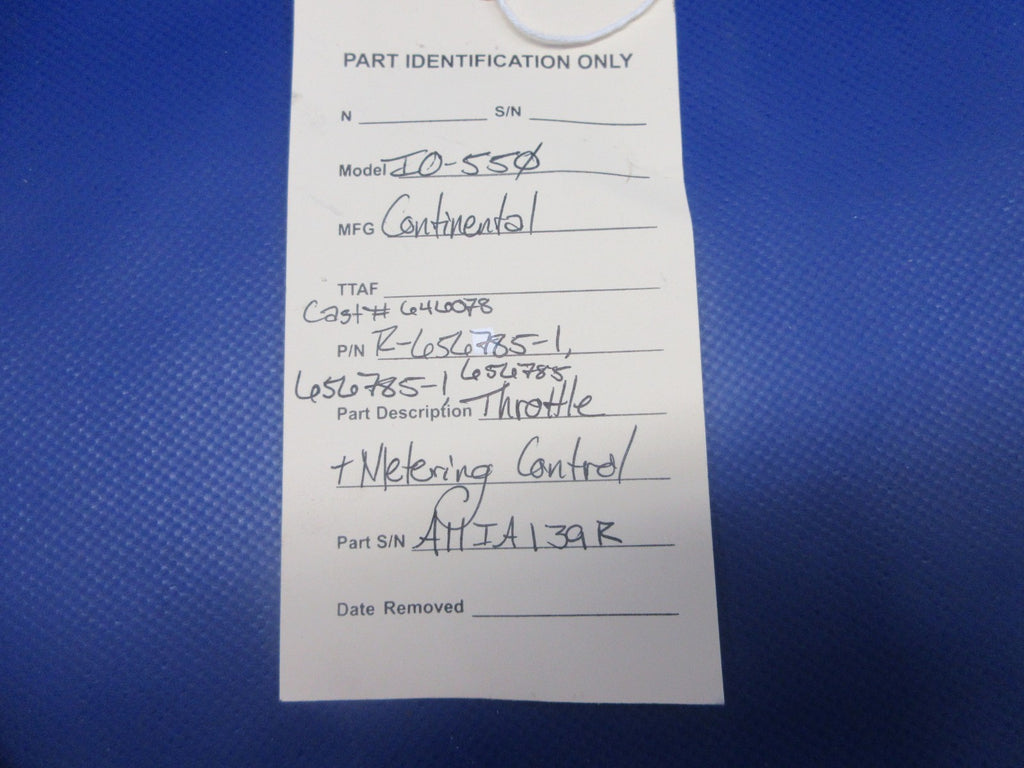 PART IDENTIFICATION ONLY
N S/N
Model IO-55Ø
MFG Continental
TTAF
Cast# 646078
P/N R-656785-1,
656785-1, 656785
Part Description Throttle
+ Metering Control
Part S/N AHIA139R
Date Removed